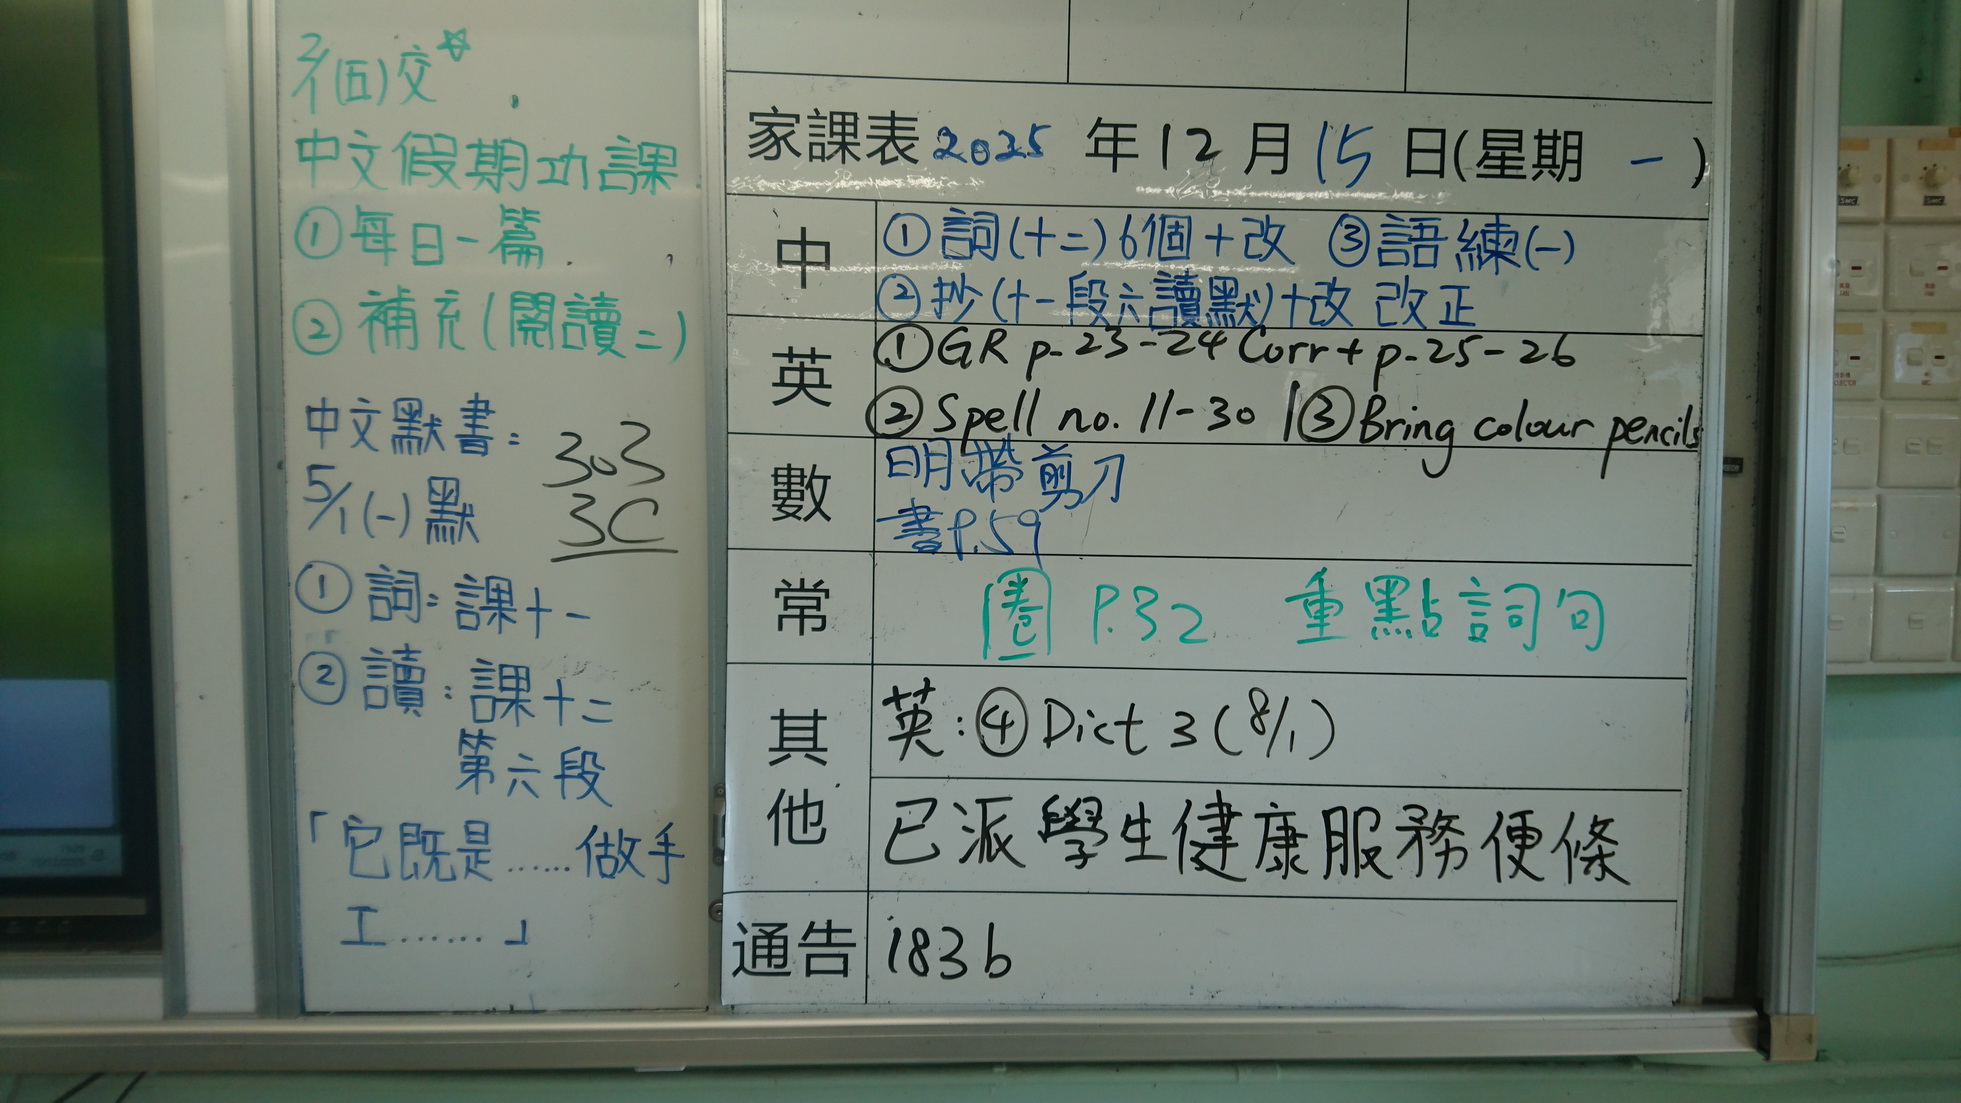 2/1(五)交☆
中文假期功課
①每日一篇
②補充(閱讀二)
中文默書:
5/1(一)默
303
3C
①詞:課十一
②讀:課十二
第六段
「它既是……做手
工……」
家課表2025年12月15日(星期一)
中
①詞(十二)6個+改 ③語練(一)
②抄(十一段六讀默)+改 改正
英
①GR p.23-24 Corr + p.25-26
②Spell no. 11-30 |③Bring colour pencils
數
明帶剪刀
書P.59
常
圈 P.32 重點詞句
其他
英:④Dict 3(8/1)
已派學生健康服務便條
通告
183b